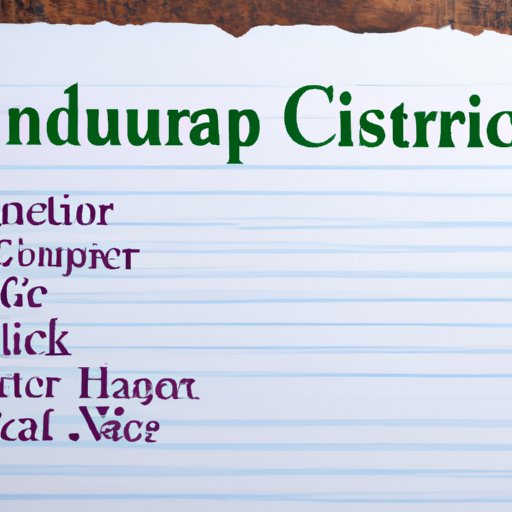 nduurap Cistrric
nelior
Cbomprer
Gc
lick
rter Hagor
cal .Vice